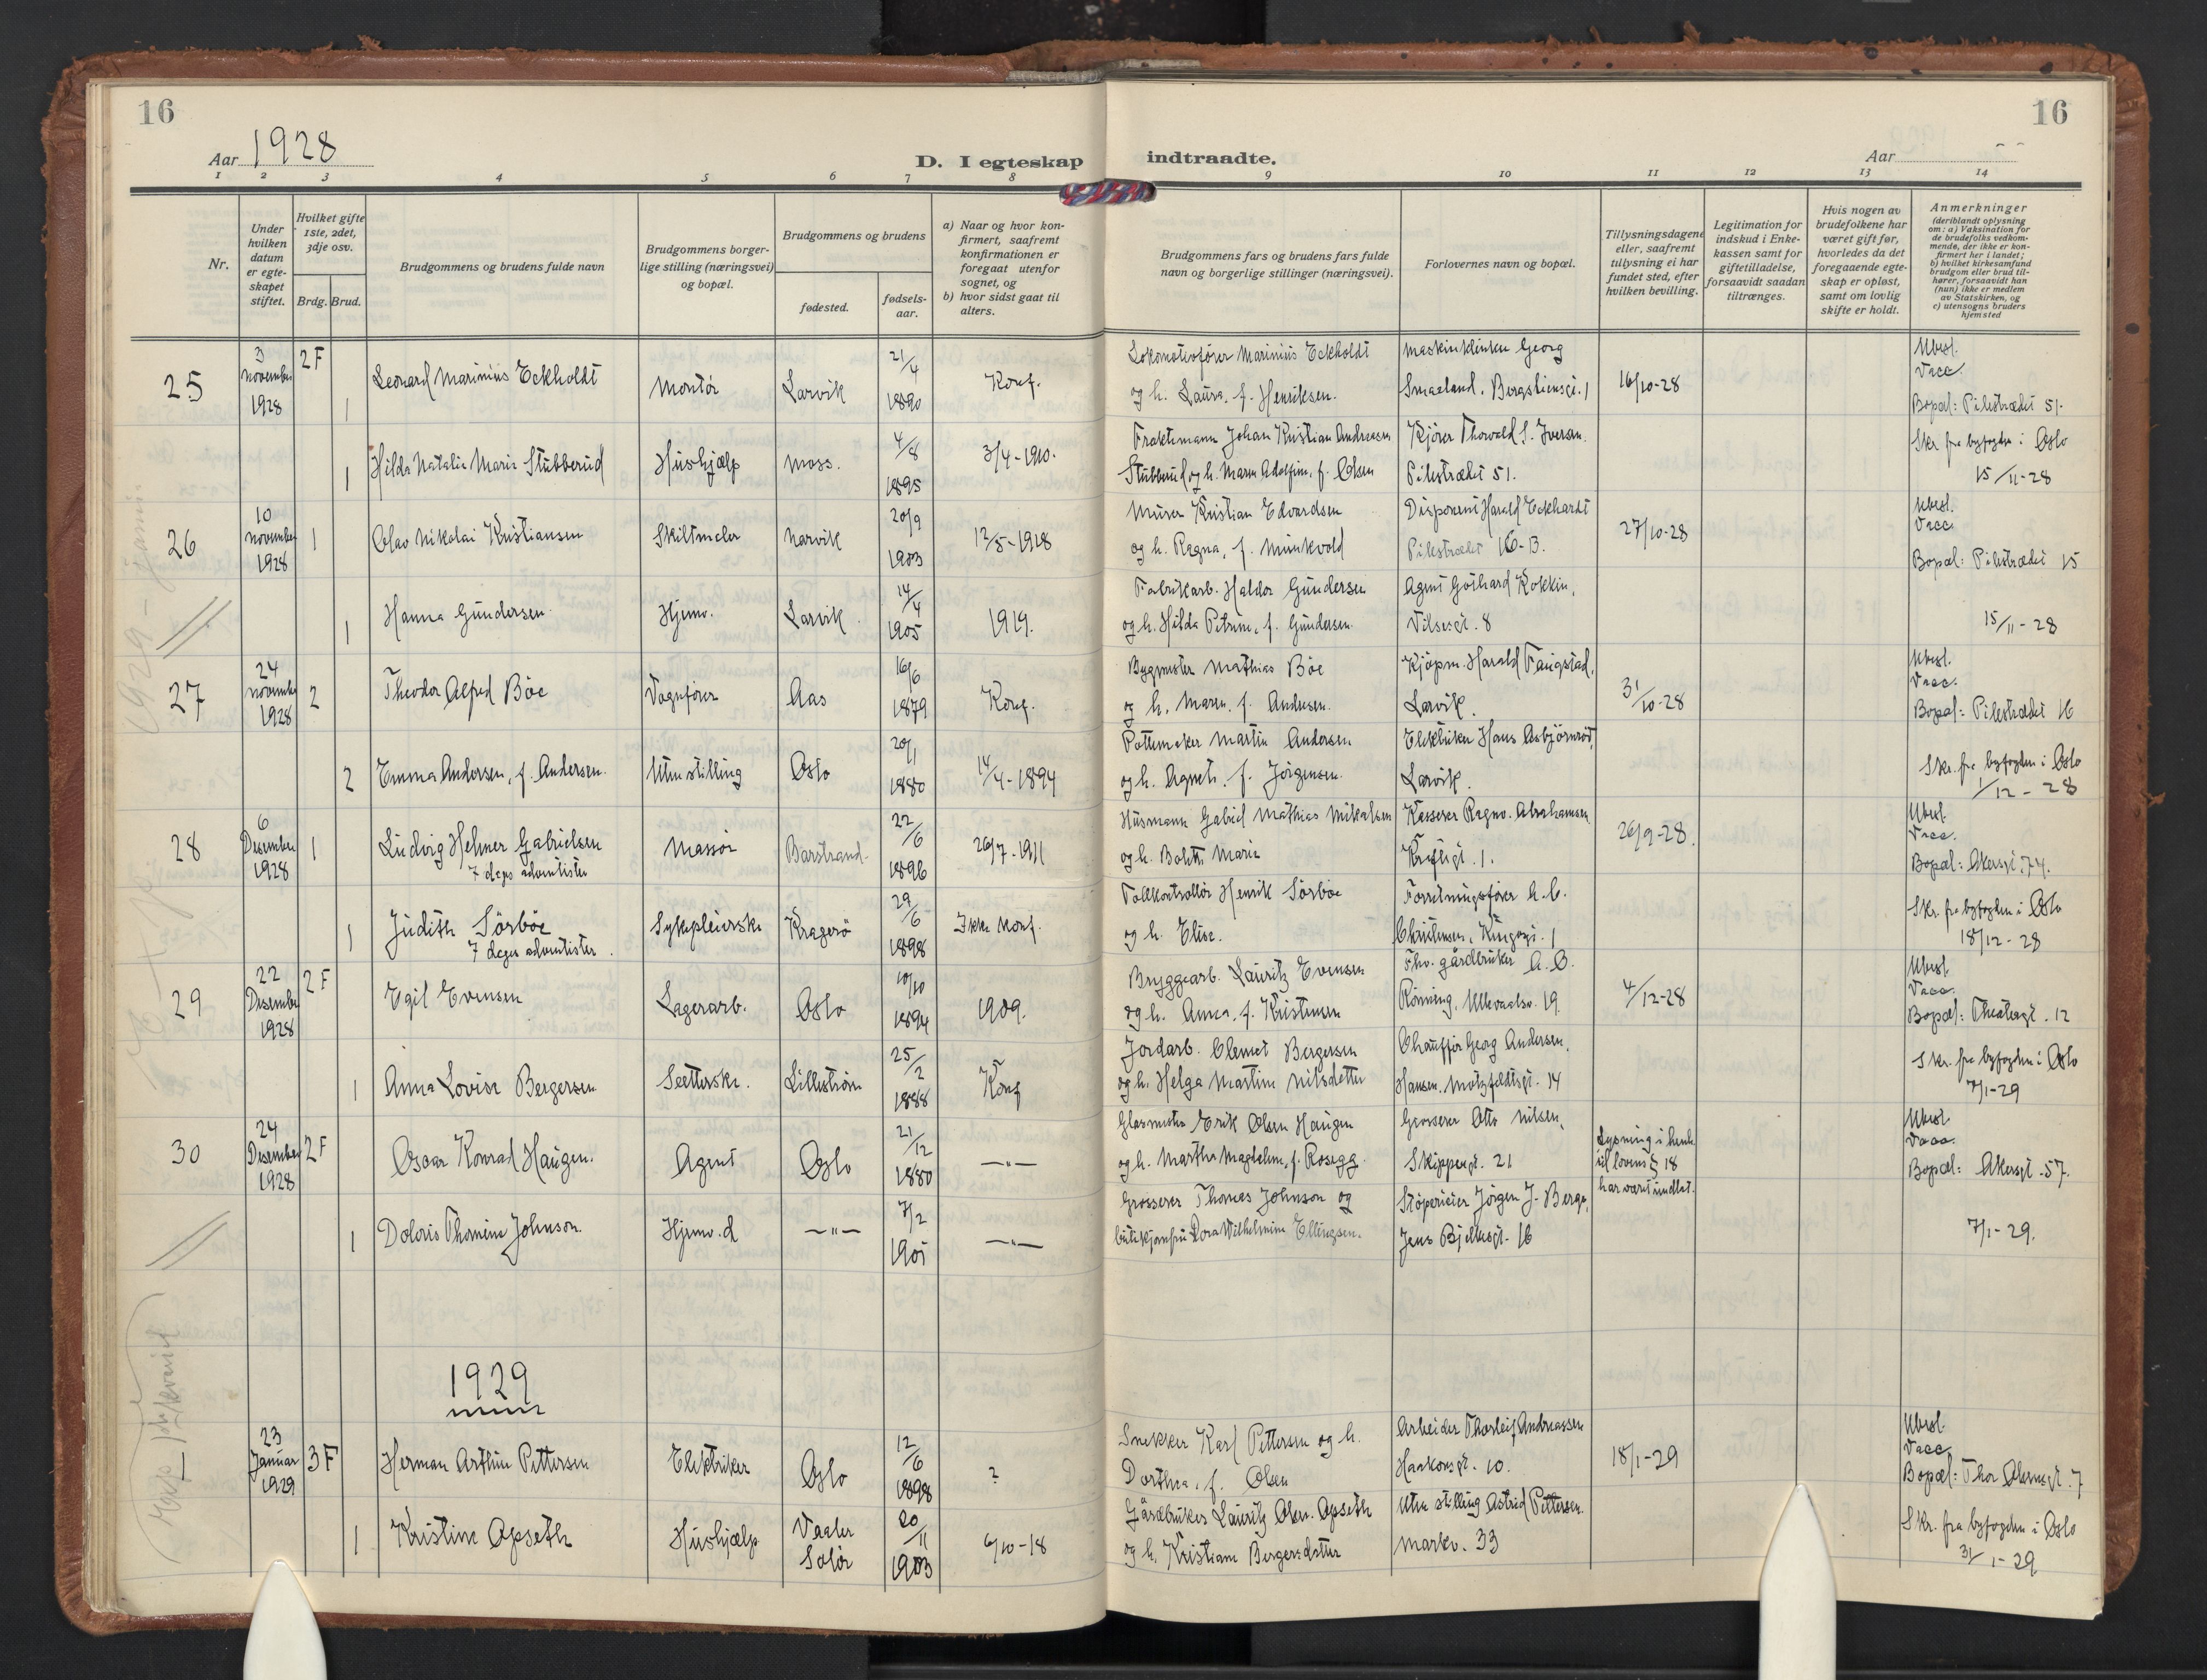 16
16
Aar 1928
D. I egteskap indtraadte.
Aar
1 2 3 4 5 6 7 8 9 10 11 12 13 14
Nr.
Under hvilken datum er egteskapet stiftet.
Hvilket gifte 1ste, 2det, 3dje osv.
Brdg. Brud.
Brudgommens og brudens fulde navn
Brudgommens borgerlige stilling (næringsvei) og bopæl.
Brudgommens og brudens
fødested.
fødselsaar.
a) Naar og hvor konfirmert, saafremt konfirmationen er foregaat utenfor sognet, og
b) hvor sidst gaat til alters.
Brudgommens fars og brudens fars fulde navn og borgerlige stillinger (næringsvei).
Forlovernes navn og bopæl.
Tillysningsdagene eller, saafremt tillysning ei har fundet sted, efter hvilken bevilling.
Legitimation for indskud i Enkekassen samt for giftetilladelse, forsaavidt saadan tiltrænges.
Hvis nogen av brudefolkene har været gift før, hvorledes da det foregaaende egteskap er opløst, samt om lovlig skifte er holdt.
Anmerkninger
(deriblandt oplysning om: a) Vaksination for de brudefolks vedkommende, der ikke er konfirmert her i landet; b) hvilket kirkesamfund brudgom eller brud tilhører, forsaavidt han (hun) ikke er medlem av Statskirken, og c) utensogns bruders hjemsted
25 3 november 1928 2F 1 Leonard Marinius Eckholdt Montør Larvik 21/4 1890 Konf. Lokomotivfører Marinius Eckholdt og h. Laura, f. Henriksen. Maskintekniker Georg Smaeland. Bergsliensgt. 1 16/10-28 Ubesl. Vacc. Bopæl: Pilestrædet 51.
1 Hilda Natalie Marie Stubberud Hushjælp Moss. 4/8 1895 3/4-1910. Fraktemann Johan Kristian Andreasen Stubberud og h. Maren Adolfine, f. Olsen Kjører Thorvald S. Iversen. Pilestrædet 51. Skr. fra byfogden i Oslo 15/11-28
26 10 november 1928 1 Olav Nikolai Kristiansen Skiltmaler Narvik 20/9 1903 12/5-1918 Murer Kristian Edvardsen og h. Ragna, f. Munkvold Disponent Harald Eckhardt Pilestrædet 16-B. 27/10-28 Ubesl. Vacc. Bopæl: Pilestrædet 15
1 Hanna Gundersen. Hjemv. Larvik. 14/4 1905 1919. Fabrikarb. Haldor Gundersen og h. Hilda Petrine, f. Gundersen. Agent Gothard Kokkin, Vilsesgt. 8 15/11-28
27 24 november 1928 2 Theodor Alfred Böe Vognfører Aas 16/6 1879 Konf. Bygmester Mathias Böe og h. Maren, f. Andresen. Kjöpm. Harald Faugstad, Larvik. 31/10-28 Ubesl. Vacc. Bopæl: Pilestrædet 16
2 Emma Andersen, f. Andersen. Uten stilling Oslo 20/1 1880 14/4-1894 Pottemaker Martin Andersen og h. Agnete, f. Jörgensen. Elektriker Hans Asbjörnrød, Larvik. Skr. fra byfogden i Oslo 1/12-28
28 6 Desember 1928 1 Ludvig Helmer Gabrielsen 7 dags adventister Massör Barstrand. 22/6 1896 26/7-1911 Husmann Gabriel Mathias Mikalsen og h. Bolette Marie Kasserer Ragnv. Abrahamsen Kroftgt. 1. 26/9-28. Ubesl. Vacc. Bopæl: Akersgt. 74.
1 Judith Sörböe 7 dags adventister. Sykepleierske Kragerø 29/6 1898 Ikke konf. Tollkontrollör Henrik Sörböe og h. Elise. Forretningsfører A.C. Christensen, Kingosgt. 1 Skr. fra byfogden i Oslo 18/12-28
29 22 Desember 1928 2F Egil Evensen Lagerarb. Oslo 10/10 1894 1909. Bryggearb. Lauritz Evensen og h. Anna, f. Kristensen Fhv. gårdbruker A.C. Rönning, Ullevaalsv. 19. 4/12-28 Ubesl. Vacc. Bopæl: Theatergt. 12
1 Anna Lovise Bergersen Sætterske. Lilleström 25/2 1888 Konf Jordarb. Clemet Bergersen og h. Helga Martine Nilsdatter Chaufför Georg Andersen, Hansen, Motzfeldtsgt. 14 Skr. fra byfogden i Oslo 7/1-29
30 24 Desember 1928 2F Oscar Konrad Haugen. Agent Oslo 21/12 1880 —"— Glasmester Erik Olsen Haugen og h. Marthe Magdalene, f. Rosegg. Grosserer Otto Nilsen, Skippergt. 21 Lysning i henh. til lovens § 18 har været undlat. Ubesl. Vacc. Bopæl: Akersgt. 57.
1 Doloris Thomine Johnson. Hjemv. d —"— 7/2 1905 —"— Grosserer Thomas Johnson og Dora Wilhelmine Ellingsen. Støperieier Jörgen J. Berge, Jens Bjelkesgt. 16 7/1-29.
1929
1 23 Januar 1929 3F Herman Arthur Pettersen Elektriker Oslo 12/6 1898 ? Snekker Karl Pettersen og h. Dorthea, f. Olsen Arbeider Thorleif Andreassen Haakonsgt. 10. 18/1-29 Ubesl. Vacc. Bopæl: Thor Olsensgt. 7
1 Kristine Opseth Hushjælp Vaaler Solör 20/11 1903 6/10-18 Gårdbruker Lauritz Olsen Opseth og h. Kristiane Bergersdatter Uten stilling Astrid Pettersen. Markv. 33 Skr. fra byfogden i Oslo 31/1-29.